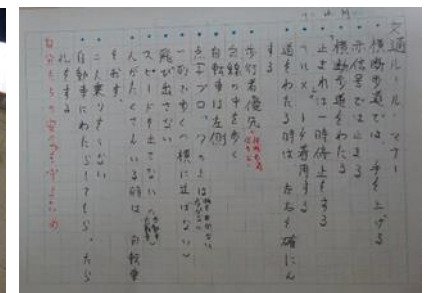 交通ルール・マナー
横断歩道では 手を上げる
赤信号では止まる
横断歩道をわたる
止まれは一時停止をする
ヘルメットを着用する
道をわたる時は 左右を確にん
する
歩行者優先
白線の中を歩く
自転車は左側
点字ブロックの上は
一列で歩く(横に並ばない)
飛び出さない
スピードを出さない
人がたくさんいる時は 自転車
をおす。
二人乗りをしない
自動車にわたらしてもらったら
礼をする
自分たちの安全を守るため